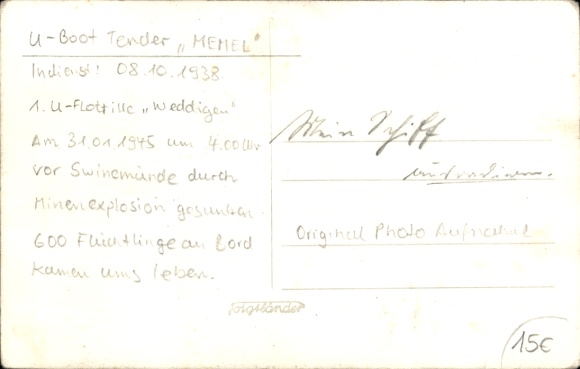 U-Boot Tender „MEMEL"
Indienst: 08.10.1938
1. U-Flottille „Weddigen"
Am 31.01.1945 um 4.00 Uhr
vor Swinemünde durch
Minenexplosion gesunken.
600 Flüchtlinge an Bord
kamen ums leben.
Mein Schiff
Original Photo Aufnahme
Voigtländer
15€